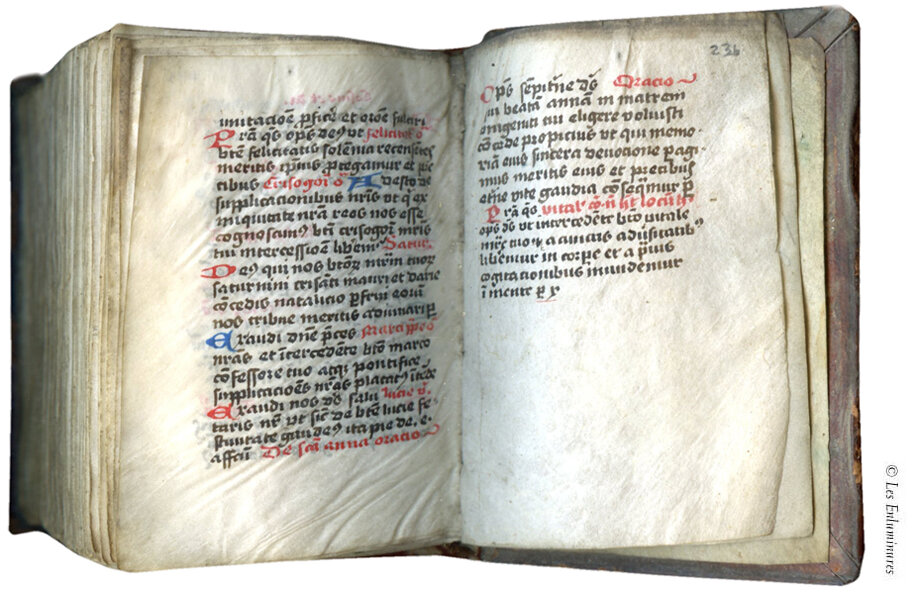 imitacioē ꝓfice et oroē fulciri
Pr̄a qs̄ op̄s deꝰ vt felicitatꝭ ō
btē felicitatis solēnia recensētes
meritis ip̄ius ꝓtegamur et p̄ce
cibus Crisogoī ō Adesto dē
supplicacionibus nr̄is vt q̄ ex
iniquitate nr̄a reos nos esse
cognoscimꝰ btī crisogoī mr̄is
tui intercessiōe libem̄ Satur.
Deꝰ qui nos btoꝝ mr̄m tuoꝝ
saturnini crisāti mauri et darie
cōcedis natalicio ꝑfrui eoꝝ
nos tribue meritis adiuuari ꝑ
Exaudi dn̄e p̄ces Marci pp̄e ō
nr̄as et ītercedēte btō marco
cōfessore tuo atqꝫ pontifice
supplicacioēs nr̄as placatꝰ ītēde
Exaudi nos dꝰ salu lucie ō.
taris nr̄ vt sic̄ de btē lucie fe
stiuitate gaudeꝰ ita pie de. e.
affcū De scā anna oracio
236
Op̄s sēpitn̄e dꝰ Oracio
qui beatā annam in matrem
vnigeniti tui eligere voluisti
cōcede propicius vt qui memo
riā eius sincera deuocione pagi
mus meritis eius et precibus
etn̄e vite gaudia cōseqmur ꝑ
Pr̄a qs̄ vital
op̄s dꝰ vt intercedēte btō vitale
mr̄e tuo et a cunctis aduersitatibꝰ
liberemur in corpe et a prauis
cogitacionibus mundemur
ī mente ꝑ x
© Les Enluminures